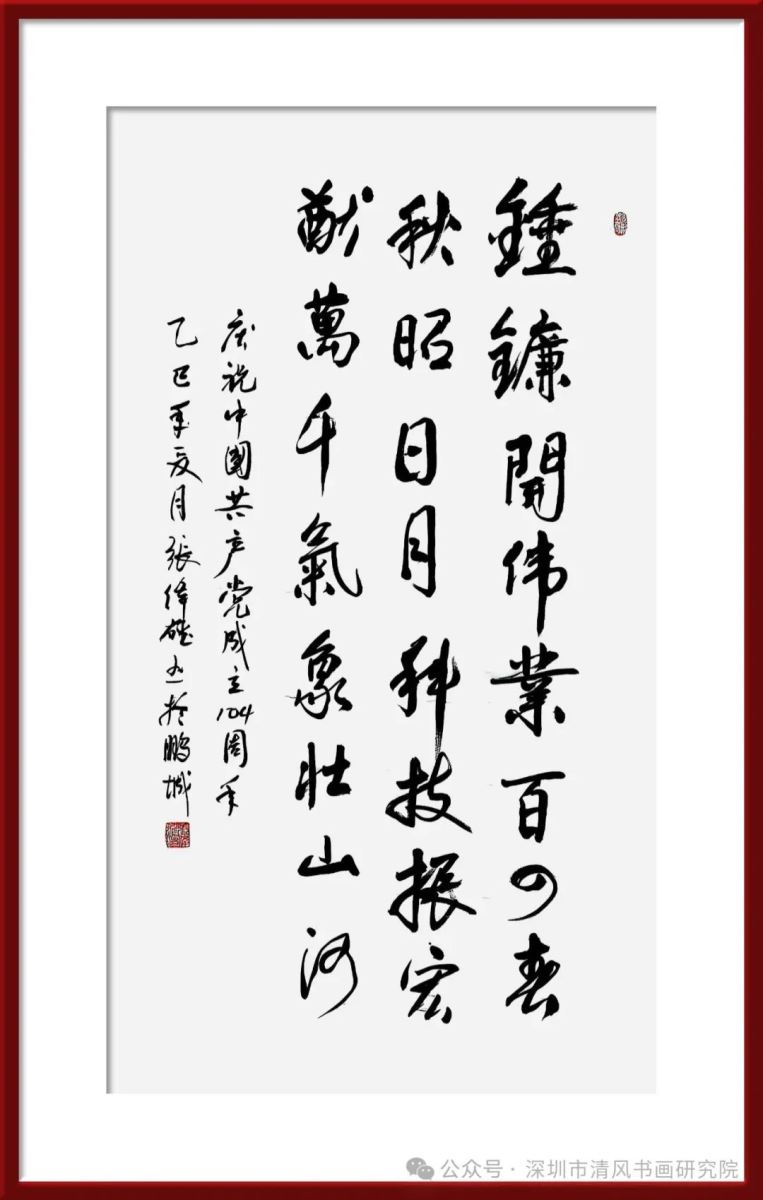 錘鐮開伟業百年春
秋昭日月科技振宏
猷萬千氣象壯山河
庆祝中國共产党成立104周年
乙巳年夏月張书於鹏城
公众号 · 深圳市清风书画研究院